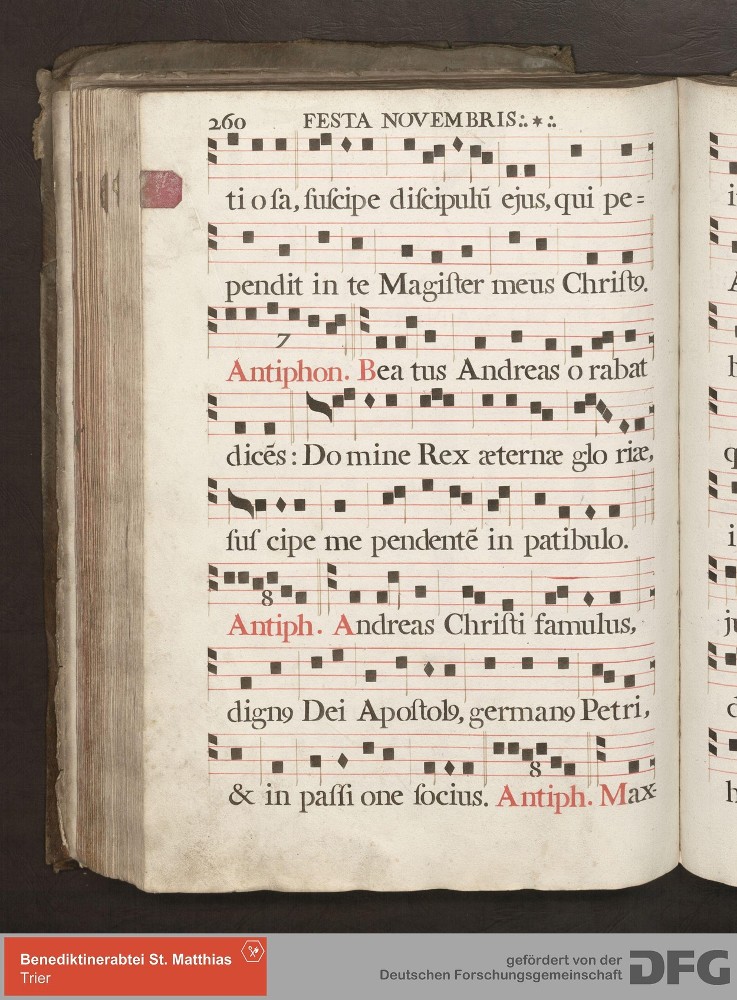 260 FESTA NOVEMBRIS:.*.:
ti o sa, ſuſcipe diſcipulū ejus, qui pe=
pendit in te Magiſter meus Chriſtꝰ.
7
Antiphon. Bea tus Andreas o rabat
dicēs: Do mine Rex æternæ glo riæ,
ſuſ cipe me pendentē in patibulo.
8
Antiph. Andreas Chriſti famulus,
dignꝰ Dei Apoſtolꝰ, germanꝰ Petri,
8
& in paſſi one ſocius. Antiph. Max-
Benediktinerabtei St. Matthias
Trier
gefördert von der
Deutschen Forschungsgemeinschaft
DFG